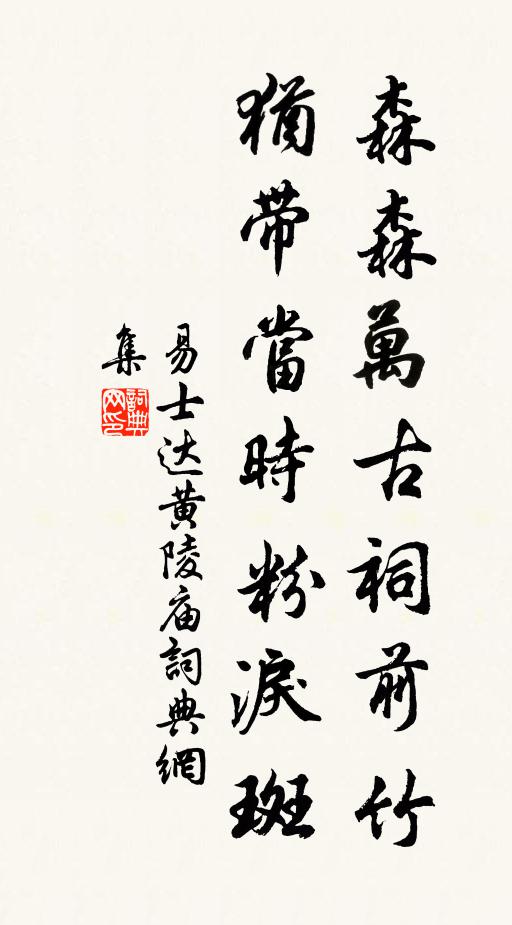 森森萬古祠前竹
猶帶當時粉淚斑
易士达黄陵庙詞典網
集
詞典網印